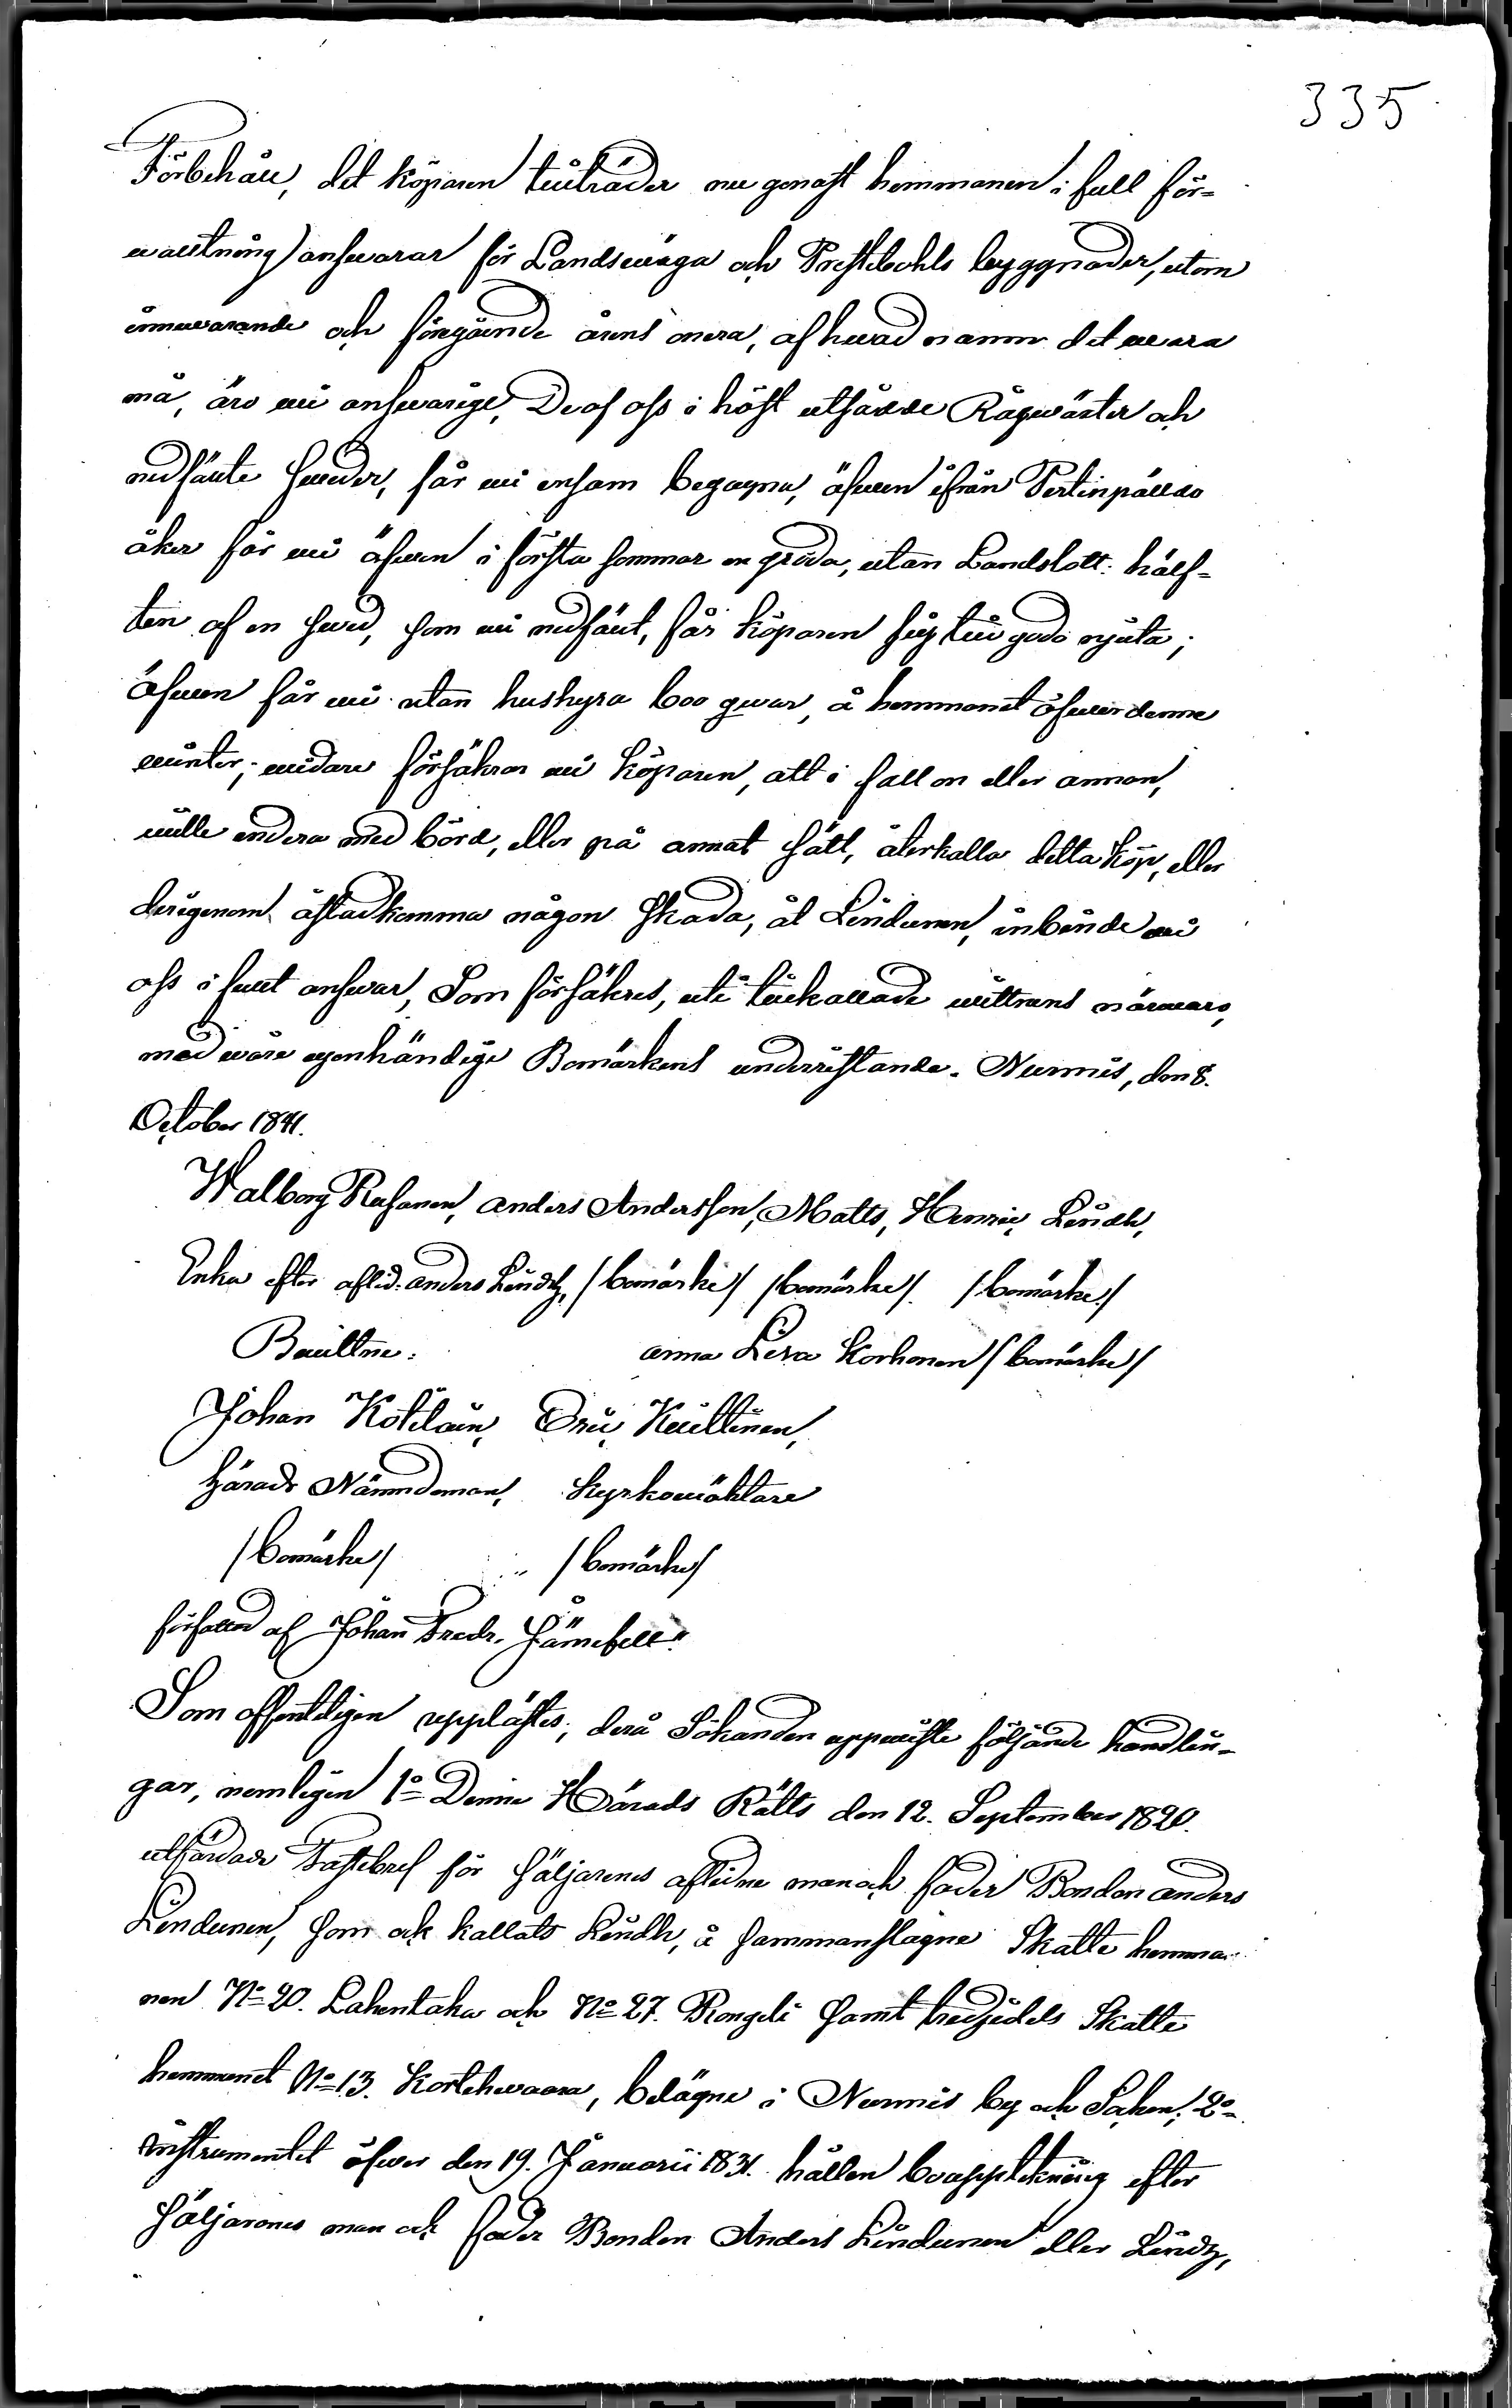 335
Förbehåll, det köparen tillträder nu genast hemmanen i full för-
waltning) answarar för Landswäga och Prestebohls byggnader, utom
innewarande och föregående årens onera, af hwad namn det wara
må, äro wi answarige, De af oss i höst utsådde Rågwäxter och
nedfälte swedor, får wi ensam begagna, äfwen ifrån Pertinpälldo
åker får wi äfwen i första sommar en gröda, utan Landslott: hälf-
ten af en swed, som wi nedfält, får köparen sig till godo njuta;
äfwen får wi utan hushyra boo qwar, å hemmanet öfwer denne
winter; widare försäkrar wi Köparen, att i fall en eller annan,
wille endera med börd, eller på annat sätt, återkalla detta Köp, eller
derigenom åstadkomma någon skada, åt Lindunen, inbinde wi
oss i fullt answar, Som försäkres, uti tillkallade wittnens närwaro,
med wåre egenhändige Bomärkens underristande. Nurmis, den 8.
October 1841.
Walborg Rusanen, Anders Andersson, Matts, Henric Lindh,
Enka efter aflid: Anders Lindh, /bomärke/ /bomärke/. /bomärke/
Bewittne: Anna Lisa Korhonen /bomärke/
Johan Kotilain, Eric Keultinen,
Härads Nämndeman, Kyrkowäktare
/bomärke/ /bomärke/
författad af Johan Fredr. Jämefelt."
Som offentligen upplästes; derå Sökanden uppwiste följande handlin-
gar, nemligen 1o Denne Härads Rätts den 12. September 1820.
utfärdade Fastebref för Säljarenes aflidne man och fader Bonden Anders
Lindunen, som ock kallats Lindh, å sammanslagne Skatte hemma-
nen No 20. Lahentaka och No 27. Rongeli samt tredjedels Skatte
hemmanet No 13. Kortehwaara, belägne i Nurmis by och Soken; 2o
Instrumentet öfwer den 19. Januarii 1831. hållen bouppteckning efter
Säljarenes man och fader Bonden Anders Lindunen eller Lindh,